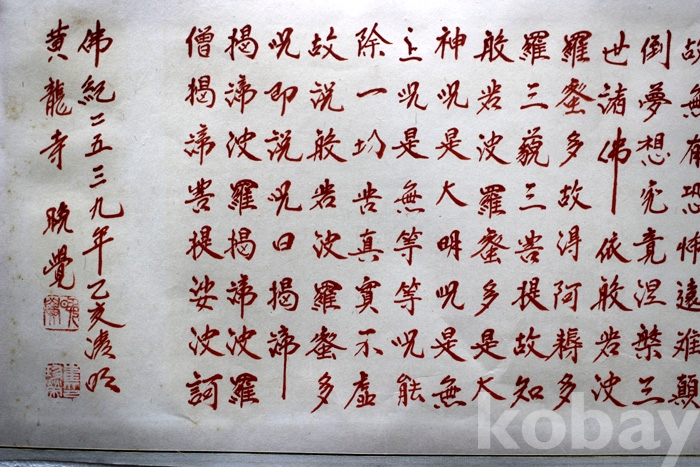 故無有恐怖遠離顛
倒夢想究竟涅槃三
世諸佛依般若波
羅蜜多故得阿耨多
羅三藐三菩提故知
般若波羅蜜多是大
神呪是大明呪是無
上呪是無等等呪能
除一切苦真實不虛
故說般若波羅蜜多
呪即說呪曰揭諦
揭諦波羅揭諦波羅
僧揭諦菩提娑波訶
佛紀二五三九年乙亥清明
黃龍寺 晚覺
kobay